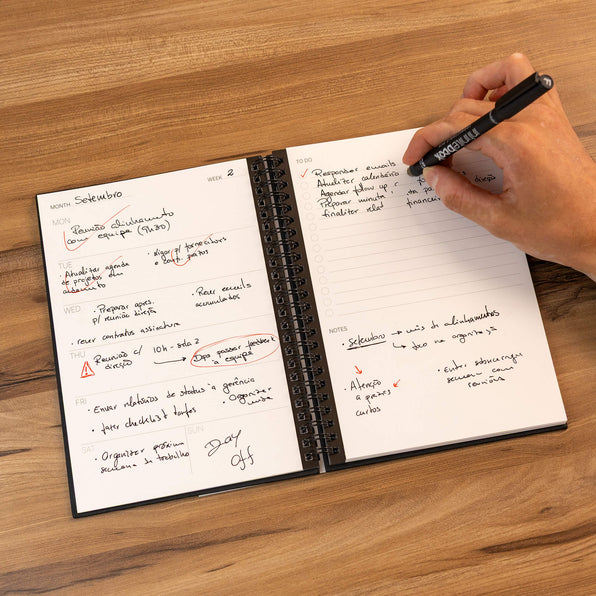 MONTH Setembro
WEEK 2
MON
Reunião alinhamento
com equipa (9h30)
TUE
• Atualizar agenda
de projetos em
andamento
p/ fornecedores
e conf. prazos
WED
• Preparar apres.
p/ reunião direção
• Rever emails
acumulados
• rever contratos assinatura
THU
Reunião c/
direção
10h - sala 2
Dpo passar feedback
à equipa
FRI
• Enviar relatórios de status à gerência
• fazer checklist tarefas
• Organizar
SAT
• Organizar próxima
semana de trabalho
SUN
Day
off
TO DO
Responder emails
Atualizar calendário
Agendar follow up
direção
Preparar minuta
finalizar financeiro
NOTES
• Setembro → mês de alinhamentos
→ foco na organização
• Atenção
a prazos
curtos
• Entrar
semana com
reuniões